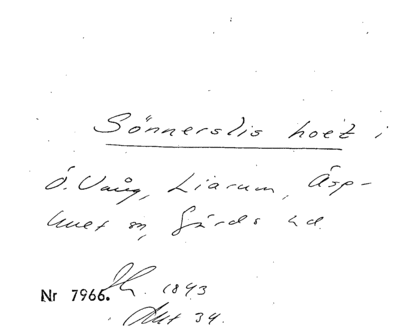 Sönnerslis hoet i
Ö. Vång, Liarum, Äsp-
huet sn, Gärds hd.
Nr 7966. 1843
Akt 34.